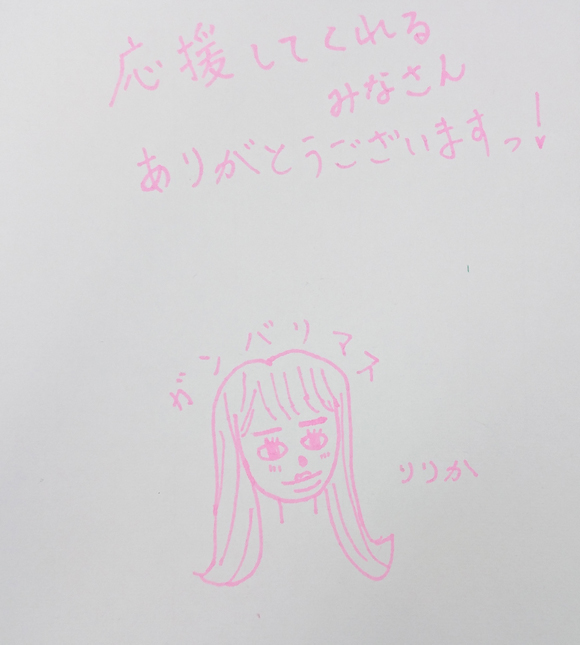 応援してくれる
みなさん
ありがとうございますっ!
ガンバリマス
りりか